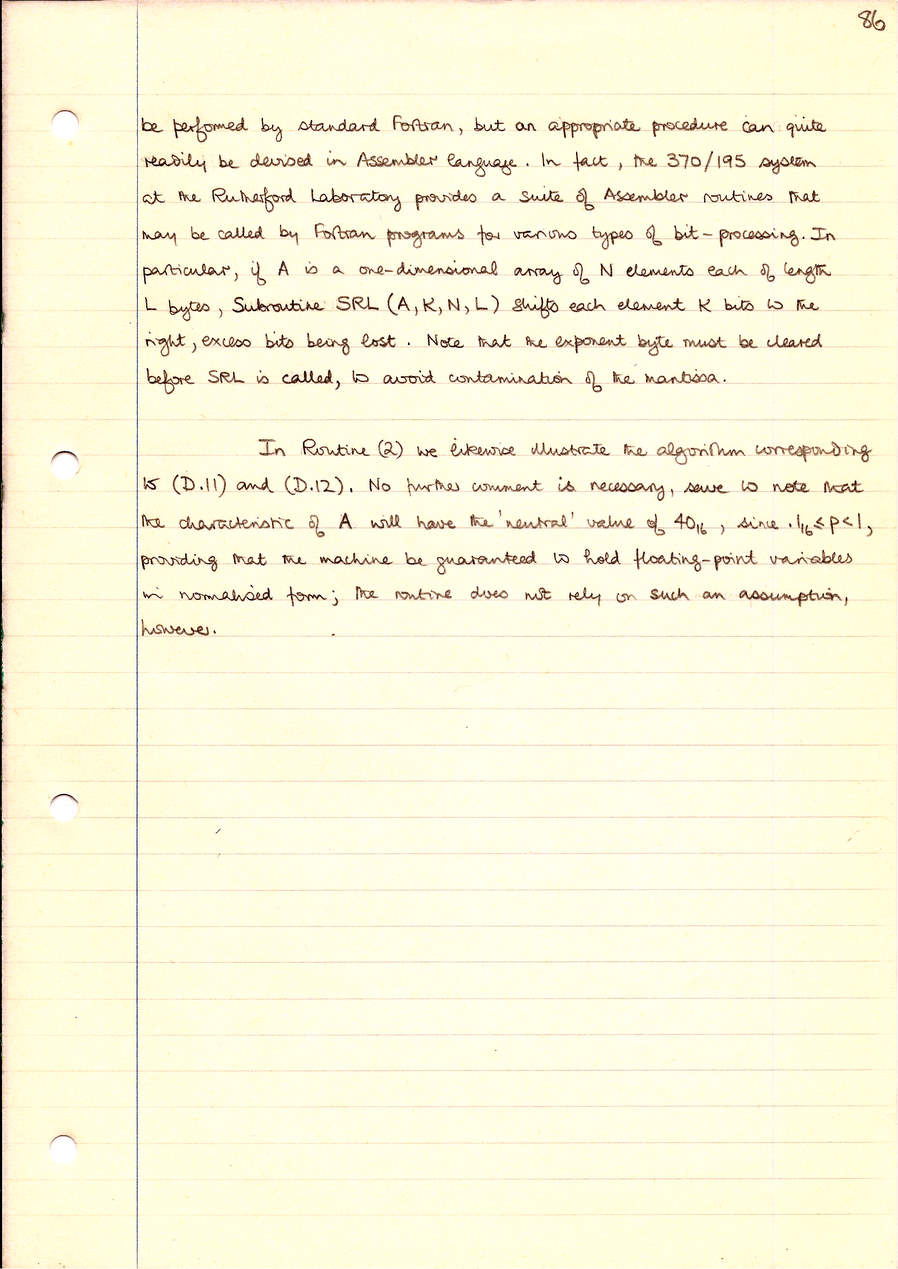 86
be performed by standard Fortran, but an appropriate procedure can quite
readily be devised in Assembler language. In fact, the 370/195 system
at the Rutherford Laboratory provides a suite of Assembler routines that
may be called by Fortran programs for various types of bit-processing. In
particular, if A is a one-dimensional array of N elements each of length
L bytes, Subroutine SRL (A,K,N,L) shifts each element K bits to the
right, excess bits being lost. Note that the exponent byte must be cleared
before SRL is called, to avoid contamination of the mantissa.
In Routine (2) we likewise illustrate the algorithm corresponding
to (D.11) and (D.12). No further comment is necessary, save to note that
the characteristic of A will have the 'neutral' value of 40₁₆, since .1₁₆≤p<1,
providing that the machine be guaranteed to hold floating-point variables
in normalised form; the routine does not rely on such an assumption,
however.